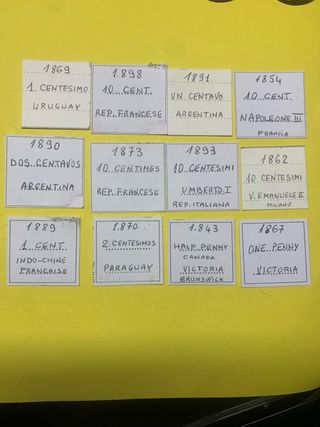 1869
1 CENTESIMO
URUGUAY
1898
10 CENT.
REP. FRANCESE
1891
UN CENTAVO
ARGENTINA
1854
10 CENT.
NAPOLEONE III
FRANCIA
1890
DOS CENTAVOS
ARGENTINA
1873
10 CENTIMES
REP. FRANCESE
1893
10 CENTESIMI
UMBERTO I
REP. ITALIANA
1862
10 CENTESIMI
V. EMANUELE II
MILANO
1889
1 CENT.
INDO-CHINE
FRANCAISE
1870
2 CENTESIMOS
PARAGUAY
1843
HALF PENNY
CANADA
VICTORIA
BRUNSWICK
1867
ONE PENNY
VICTORIA